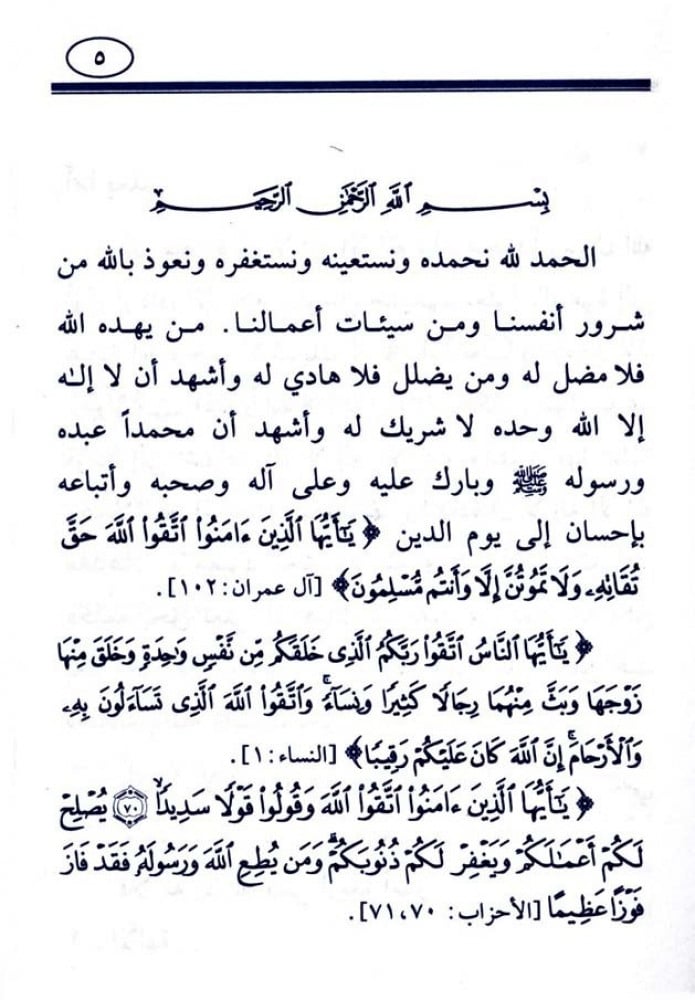 ٥
بِسْمِ ٱللَّهِ ٱلرَّحْمَٰنِ ٱلرَّحِيمِ
الحمد لله نحمده ونستعينه ونستغفره ونعوذ بالله من
شرور أنفسنا ومن سيئات أعمالنا. من يهده الله
فلا مضل له ومن يضلل فلا هادي له وأشهد أن لا إلـٰه
إلا الله وحده لا شريك له وأشهد أن محمداً عبده
ورسوله ﷺ وبارك عليه وعلى آله وصحبه وأتباعه
بإحسان إلى يوم الدين ﴿ يَٰٓأَيُّهَا ٱلَّذِينَ ءَامَنُوا۟ ٱتَّقُوا۟ ٱللَّهَ حَقَّ
تُقَاتِهِۦ وَلَا تَمُوتُنَّ إِلَّا وَأَنتُم مُّسْلِمُونَ﴾ [آل عمران: ١٠٢].
﴿ يَٰٓأَيُّهَا ٱلنَّاسُ ٱتَّقُوا۟ رَبَّكُمُ ٱلَّذِى خَلَقَكُم مِّن نَّفْسٍ وَٰحِدَةٍ وَخَلَقَ مِنْهَا
زَوْجَهَا وَبَثَّ مِنْهُمَا رِجَالًا كَثِيرًا وَنِسَآءً ۚ وَٱتَّقُوا۟ ٱللَّهَ ٱلَّذِى تَسَآءَلُونَ بِهِۦ
وَٱلْأَرْحَامَ ۚ إِنَّ ٱللَّهَ كَانَ عَلَيْكُمْ رَقِيبًا﴾ [النساء: ١].
﴿ يَٰٓأَيُّهَا ٱلَّذِينَ ءَامَنُوا۟ ٱتَّقُوا۟ ٱللَّهَ وَقُولُوا۟ قَوْلًا سَدِيدًا ۙ ٧٠ يُصْلِحْ
لَكُمْ أَعْمَٰلَكُمْ وَيَغْفِرْ لَكُمْ ذُنُوبَكُمْ ۗ وَمَن يُطِعِ ٱللَّهَ وَرَسُولَهُۥ فَقَدْ فَازَ
فَوْزًا عَظِيمًا [الأحزاب: ٧٠، ٧١].